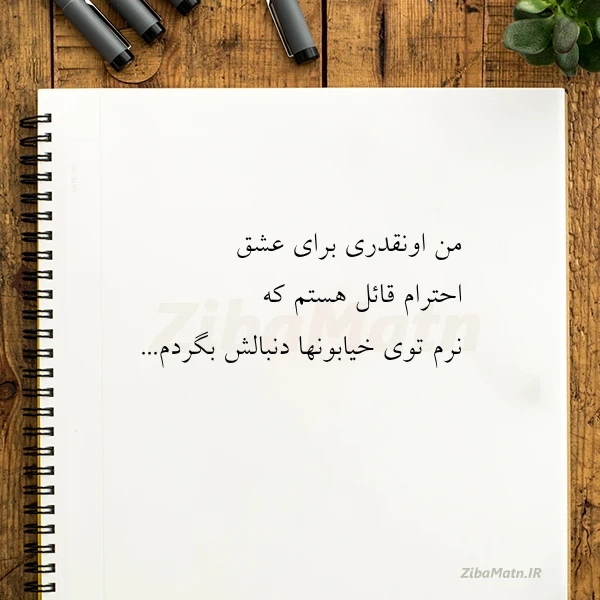 من اونقدری برای عشق
احترام قائل هستم که
نرم توی خیابونها دنبالش بگردم...
ZibaMatn
ZibaMatn.IR